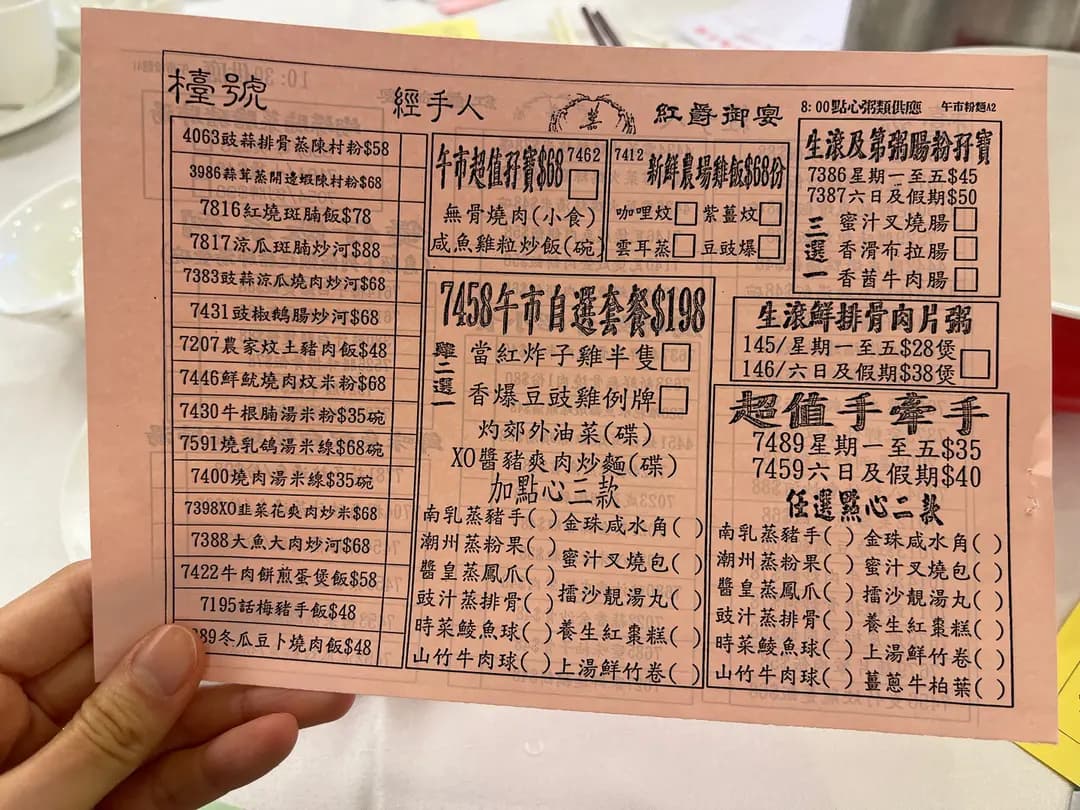 檯號
經手人
紅爵御宴
8:00點心粥類供應
午市粉麵A2
4063豉蒜排骨蒸陳村粉$58
3986蒜茸蒸開邊蝦陳村粉$68
7816紅燒斑腩飯$78
7817涼瓜斑腩炒河$88
7383豉蒜涼瓜燒肉炒河$68
7431豉椒鵝腸炒河$68
7207農家炆土豬肉飯$48
7446鮮魷燒肉炆米粉$68
7430牛根腩湯米粉$35碗
7591燒乳鴿湯米線$68碗
7400燒肉湯米線$35碗
7398XO韭菜花爽肉炒米$68
7388大魚大肉炒河$68
7422牛肉餅煎蛋煲飯$58
7195話梅豬手飯$48
389冬瓜豆卜燒肉飯$48
午市超值孖寶$68 7462
無骨燒肉(小食)
咸魚雞粒炒飯(碗)
7412 新鮮農場雞飯$68份
咖哩炆 紫薑炆
雲耳蒸 豆豉爆
7458午市自選套餐$198
雞二選一
當紅炸子雞半隻
香爆豆豉雞例牌
灼郊外油菜(碟)
XO醬豬爽肉炒麵(碟)
加點心三款
南乳蒸豬手( ) 金珠咸水角( )
潮州蒸粉果( ) 蜜汁叉燒包( )
醬皇蒸鳳爪( ) 擂沙靚湯丸( )
豉汁蒸排骨( ) 養生紅棗糕( )
時菜鯪魚球( ) 上湯鮮竹卷( )
山竹牛肉球( )
生滾及第粥腸粉孖寶
7386星期一至五$45
7387六日及假期$50
三選一
蜜汁叉燒腸
香滑布拉腸
香茜牛肉腸
生滾鮮排骨肉片粥
145/星期一至五$28煲
146/六日及假期$38煲
超值手牽手
7489星期一至五$35
7459六日及假期$40
任選點心二款
南乳蒸豬手( ) 金珠咸水角( )
潮州蒸粉果( ) 蜜汁叉燒包( )
醬皇蒸鳳爪( ) 擂沙靚湯丸( )
豉汁蒸排骨( ) 養生紅棗糕( )
時菜鯪魚球( ) 上湯鮮竹卷( )
山竹牛肉球( ) 薑蔥牛柏葉( )